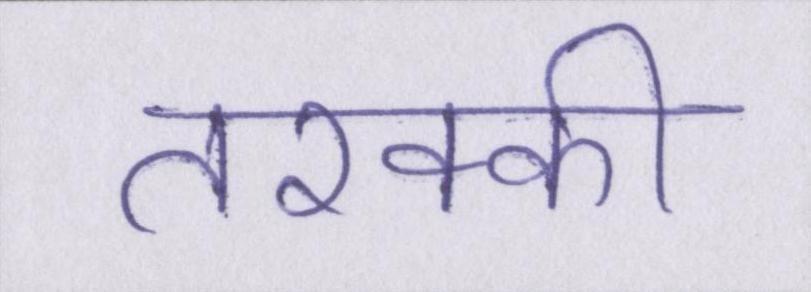 तरक्की